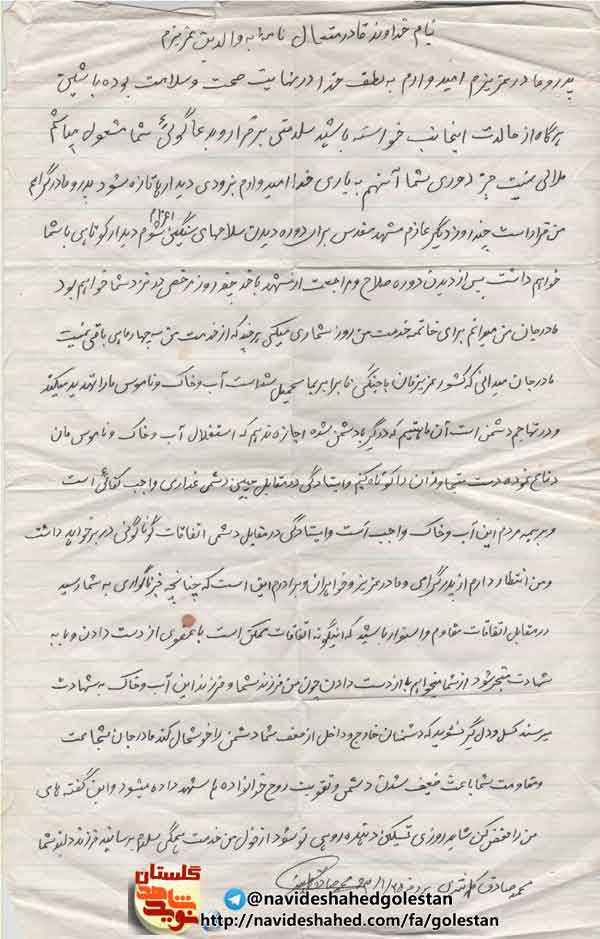 بنام خداوند قادر متعال نامه به والدین عزیزم
پدر و مادر عزیزم امیدوارم به لطف خدا در نهایت صحت و سلامت بوده باشین
هرگاه از حالت اینجانب خواسته باشید سلامتی برقرار و بدعاگوئی شما مشغول میباشم
ملالی نیست جز دوری شما آنهم به یاری خدا امیدوارم بزودی دیدارها تازه شود پدر و مادر گرامی
من قرار است چند روز دیگر عازم مشهد مقدس برای دوره دیدن سلاحهای سنگین اعزام شوم دیدار کوتاهی با شما
خواهم داشت پس از دیدن دوره سلاح و مراجعت از مشهد باخذ چند روز مرخصی در نزد شما خواهم بود
مادر جان من میدانم برای خاتمه خدمت من روز شماری میکنی هرچند که از خدمت من سه چهار ماهی باقی نیست
مادر جان میدانی که کشور عزیزمان با جنگی نابرابر بما تحمیل شده است آب و خاک و ناموس ما را تهدید میکند
و در تهاجم دشمن است آن ما هستیم که درگیر با دشمن شده اجازه ندهیم که استقلال آب و خاک و ناموس مان
دفاع نموده دست متجاوزان را کوتاه کنیم و ایستادگی در مقابل چنین دشمن غداری واجب کفائی است
و بر همه مردم این آب و خاک واجب است و ایستادگی در مقابل دشمن اتفاقات گوناگونی در بر خواهد داشت
و من انتظار دارم از پدر گرامی و مادر عزیز و خواهران و برادرم این است که چنانچه خبر ناگواری به شما رسید
در مقابل اتفاقات مقاوم و استوار باشید که اینگونه اتفاقات ممکن است با عضوی از دست دادن و یا به
شهادت منجر شود از شما میخواهم با از دست دادن چون من فرزند شما و فرزند این آب و خاک به شهادت
میرسند کسل و دلگیر نشوید که دشمنان خارج و داخل از ضعف شما دشمن را خوشحال کند مادر جان شجاعت
و مقاومت شما باعث ضعیف شدن دشمن و تقویت روح خانواده ها شهد داده میشود و این گفته های
من را حفظ کن شاید روزی تسکین دهنده روحی تو شود از قول من خدمت همگی سلام برسانید فرزند دلبند شما
محمد صادق
گلستان
نوید شاهد
@navideshahedgolestan
http://navideshahed.com/fa/golestan